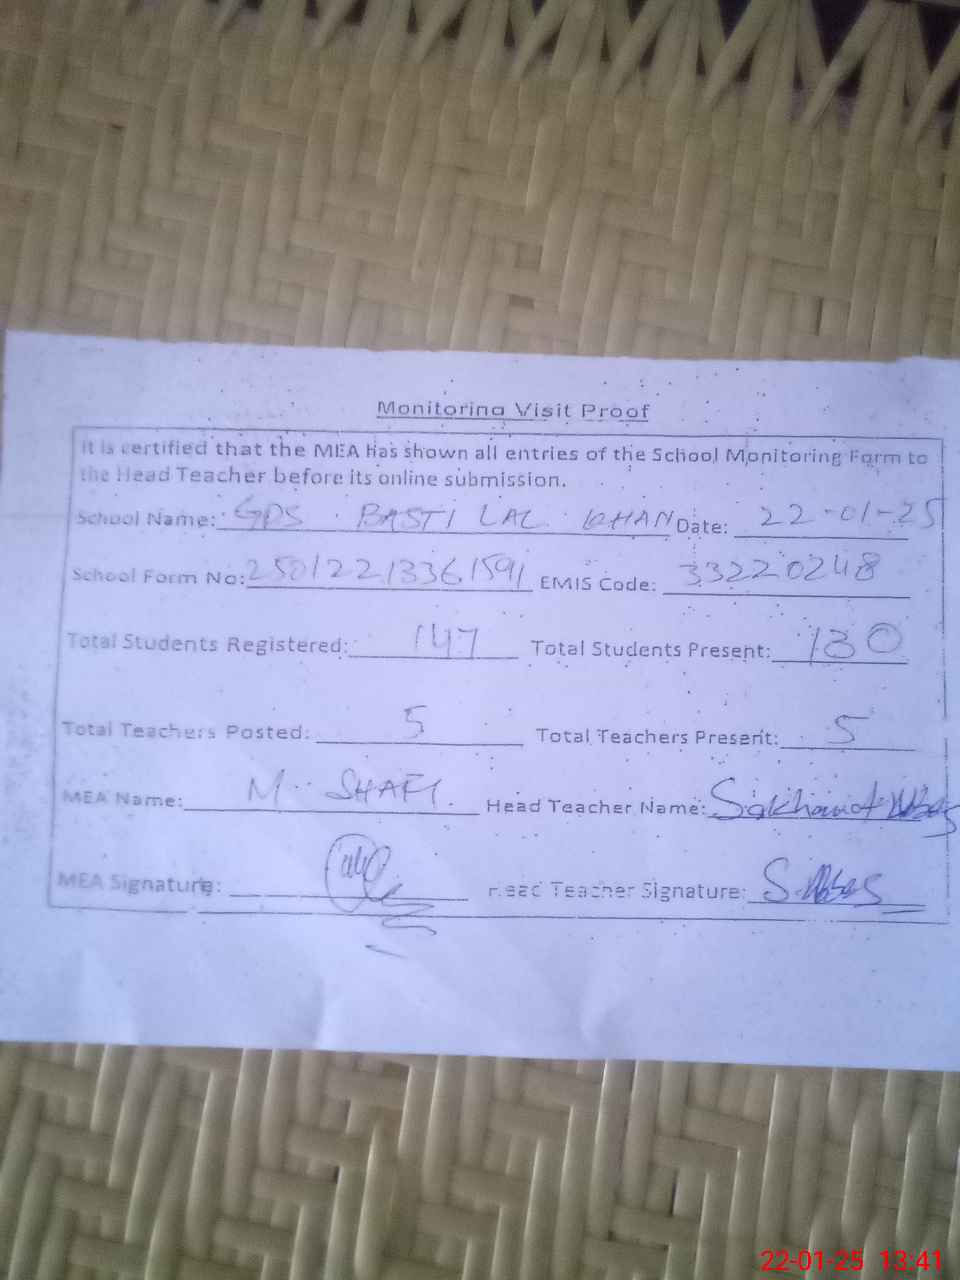 Monitoring Visit Proof
It is certified that the MEA has shown all entries of the School Monitoring Form to
the Head Teacher before its online submission.
School Name: GPS BASTI LAL KHAN Date: 22-01-25
School Form No: 25012213361591 EMIS Code: 33220248
Total Students Registered: 147 Total Students Present: 130
Total Teachers Posted: 5 Total Teachers Present: 5
MEA Name: M. SHAFI. Head Teacher Name: Abbas
MEA Signature: Head Teacher Signature: S. Abbas
22-01-25 13:41